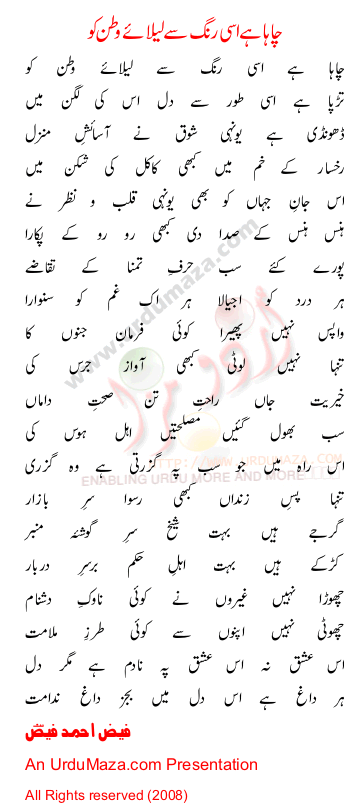 چاہا ہے اسی رنگ سے لیلائے وطن کو
چاہا ہے اسی رنگ سے لیلائے وطن کو
تڑپا ہے اسی طور سے دل اس کی لگن میں
ڈھونڈی ہے یونہی شوق نے آسائش منزل
رخسار کے خم میں کبھی کاکل کی شکن میں
اس جانِ جہاں کو بھی یونہی قلب و نظر نے
ہنس ہنس کے صدا دی کبھی رو رو کے پکارا
پورے کئے سب حرفِ تمنا کے تقاضے
ہر درد کو اجیالا ہر اک غم کو سنوارا
واپس نہیں پھیرا کوئی فرمان جنوں کا
تنہا نہیں لوٹی کبھی آواز جرس کی
خیریتِ جاں راحتِ تن صحتِ داماں
سب بھول گئیں مصلحتیں اہل ہوس کی
اس راہ میں جو سب پہ گزرتی ہے وہ گزری
تنہا پسِ زنداں کبھی رسوا سرِ بازار
گرجے ہیں بہت شیخ سرِ گوشئہ منبر
کڑکے ہیں بہت اہلِ حکم برسرِ دربار
چھوڑا نہیں غیروں نے کوئی ناوکِ دشنام
چھوٹی نہیں اپنوں سے کوئی طرزِ ملامت
اس عشق نہ اس عشق پہ نادم ہے مگر دل
ہر داغ ہے اس دل میں بجز داغِ ندامت
فیض احمد فیض
An UrduMaza.com Presentation
All Rights reserved (2008)
www.urdumaza.com
اردو مزا
HTTP://WWW.URDUMAZA.COM
ENABLING URDU MORE AND MORE